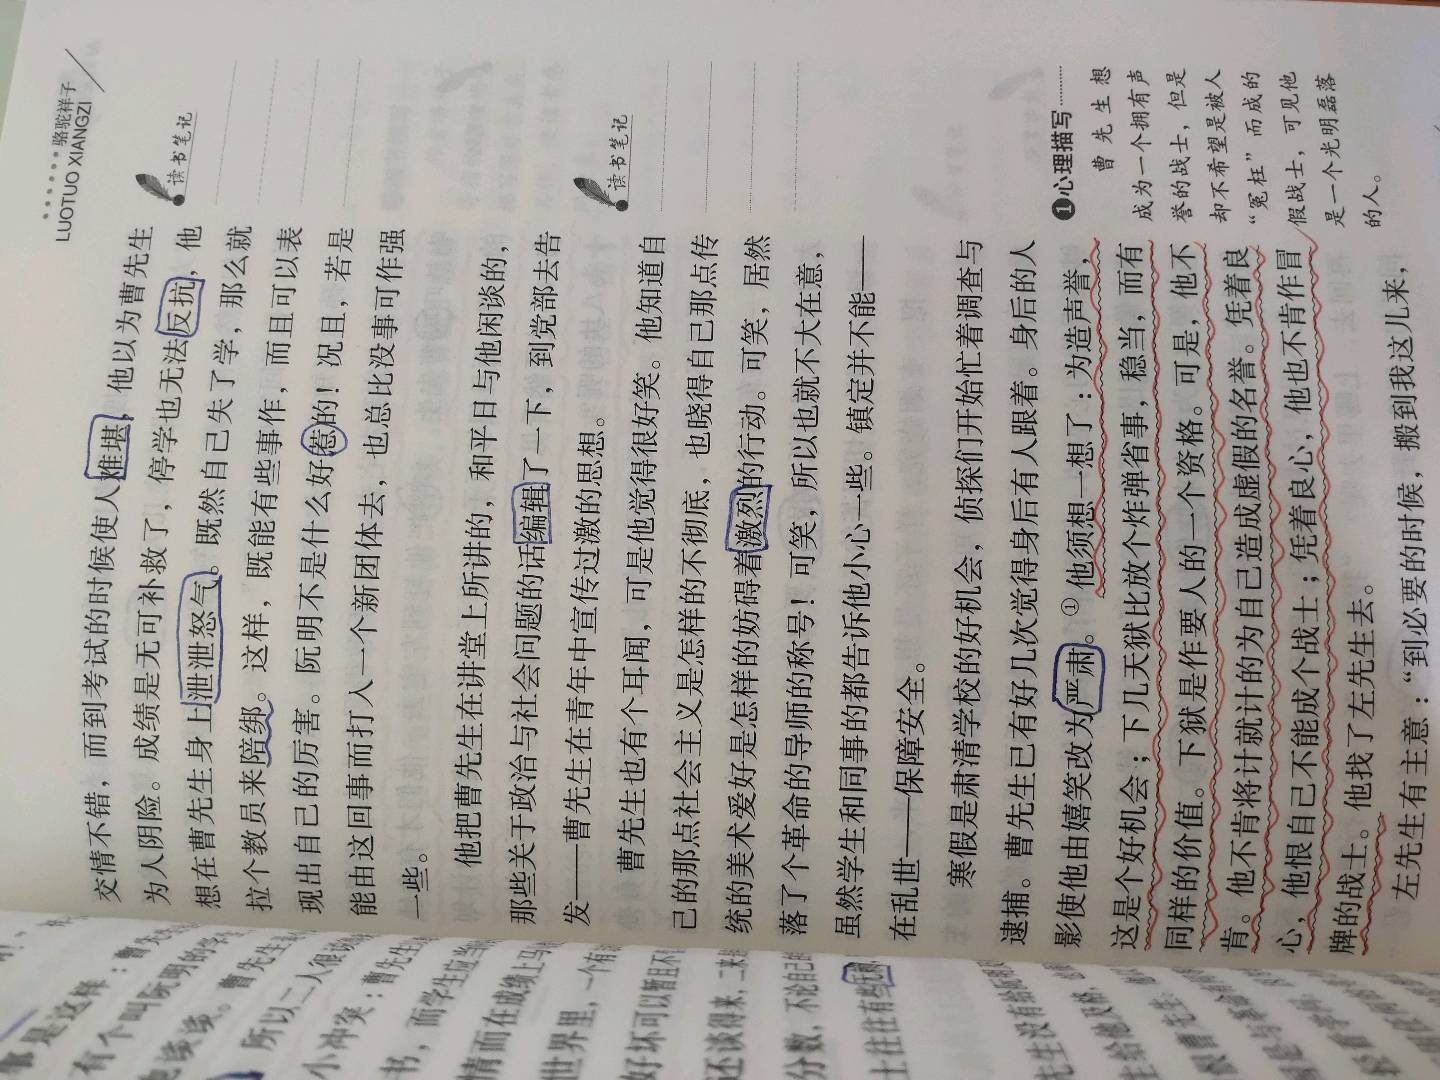 骆驼祥子
LUOTUO XIANGZI
交情不错，而到考试的时候使人难堪，他以为曹先生
为人阴险。成绩是无可补救了，停学也无法反抗，他
想在曹先生身上泄泄怒气。既然自己失了学，那么就
拉个教员来陪绑。这样，既能有些事作，而且可以表
现出自己的厉害。阮明不是什么好惹的！况且，若是
能由这回事而打入一个新团体去，也总比没事可作强
一些。
他把曹先生在讲堂上所讲的，和平日与他闲谈的，
那些关于政治与社会问题的话编辑了一下，到党部去告
发——曹先生在青年中宣传过激的思想。
曹先生也有个耳闻，可是他觉得很好笑。他知道自
己的那点社会主义是怎样的不彻底，也晓得自己那点传
统的美术爱好是怎样的妨碍着激烈的行动。可笑，居然
落了个革命的导师的称号！可笑，所以也就不大在意，
虽然学生和同事的都告诉他小心一些。镇定并不能——
在乱世——保障安全。
寒假是肃清学校的好机会，侦探们开始忙着调查与
逮捕。曹先生已有好几次觉得身后有人跟着。身后的人
影使他由嬉笑改为严肃。①他须想一想了：为造声誉，
这是个好机会；下几天狱比放个炸弹省事，稳当，而有
同样的价值。下狱是作要人的一个资格。可是，他不
肯。他不肯将计就计的为自己造成虚假的名誉。凭着良
心，他恨自己不能成个战士；凭着良心，他也不肯作冒
牌的战士。他找了左先生去。
左先生有主意：“到必要的时候，搬到我这儿来，
读书笔记
读书笔记
❶心理描写
曹先生想
成为一个拥有声
誉的战士，但是
却不希望是被人
“冤枉”而成的
假战士，可见他
是一个光明磊落
的人。
事是这样：曹先
有个叫阮明的学
他谈谈。曹先生
所以二人很说
小冲突：曹先生
书，而学生应当
情而在成绩上马
世界里，一个有
好坏可以暂且不
还谈得来，二来
分数，不论自己的
士往往有些
先生没有给阮明